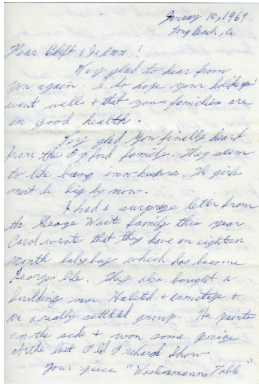 January 10, 1969
Long Beach, Ca
Dear Cliff &
Very glad to hear from
you again. I do hope your holidays
went well & that your families are
in good health.
Very glad you finally heard
from the family. They seem
to like being The girls
must be big by now.
I had a surprise letter from
the George Waite family this year
Carol wrote that they have an eighteen
month baby boy which has become
George's life. They also bought a
building near Halsted &
are a really settled group. He paints
on the side & won some prize
at the last Old Orchard Show.
Your piece "